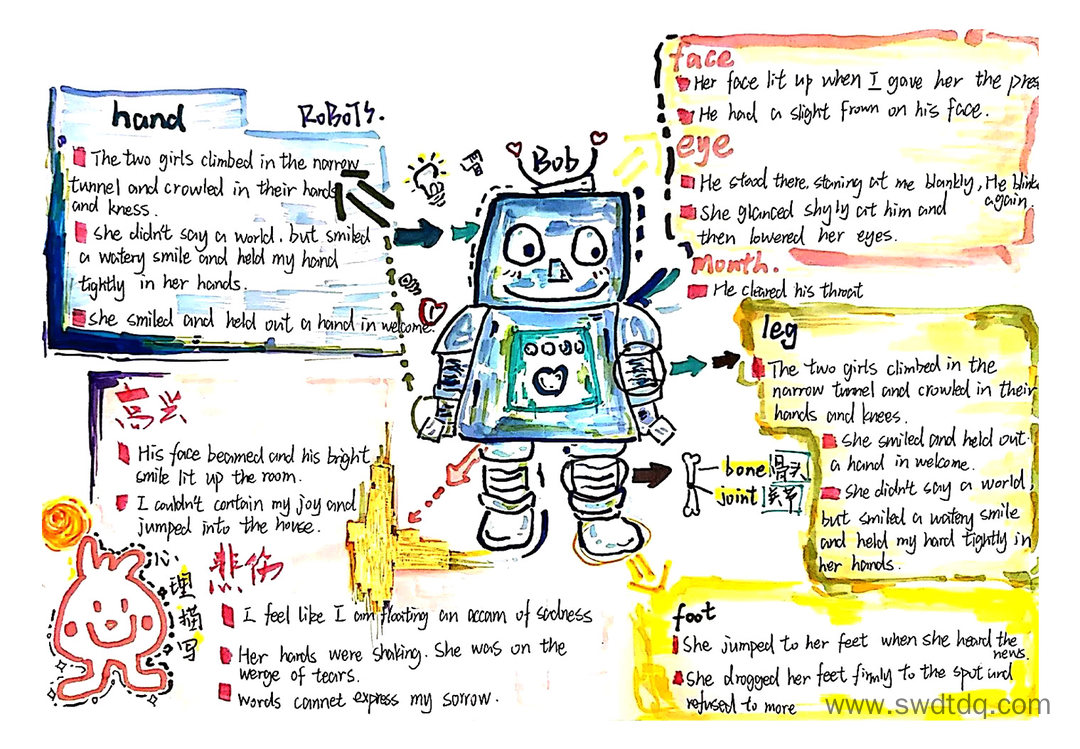 hand
RoBoTs.
The two girls climbed in the narrow
tunnel and crowled in their hands
and kness.
She didn't say a world. but smiled
a watery smile and held my hand
tightly in her hands.
She smiled and held out a hand in welcome.
Bob
face
Her face lit up when I gave her the pres
He had a slight frown on his face.
eye
He stood there, staning at me blankly, He blink
again.
She glanced shyly at him and
then lowered her eyes.
Month.
He cleared his throat
leg
The two girls climbed in the
narrow tunnel and crowled in their
hands and knees.
She smiled and held out
a hand in welcome.
She didn't say a world,
but smiled a watery smile
and held my hard tightly in
her hands.
bone 骨头
joint 关节
高兴
His face beamed and his bright
smile lit up the room.
I couldn't contain my joy and
jumped into the house.
心理描写
悲伤
I feel like I am floating an accam of sadness
Her hards were shaking. She was on the
werge of tears.
words cannet express my sorrow.
foot
She jumped to her feet when she heard the
news.
She drogged her feet firmly to the spot and
refused to more
www.swdtdq.com